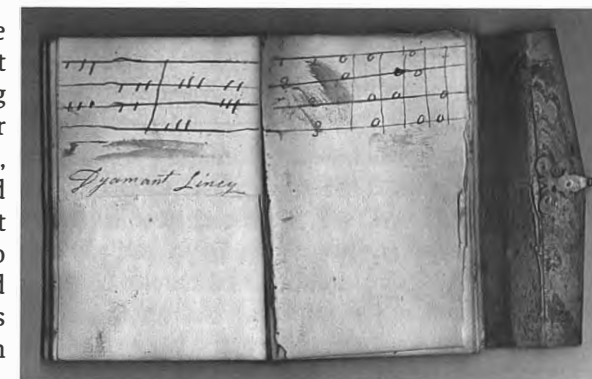 e
t
g
r
,
d
t
o
d
s
n
Dyamant Liney